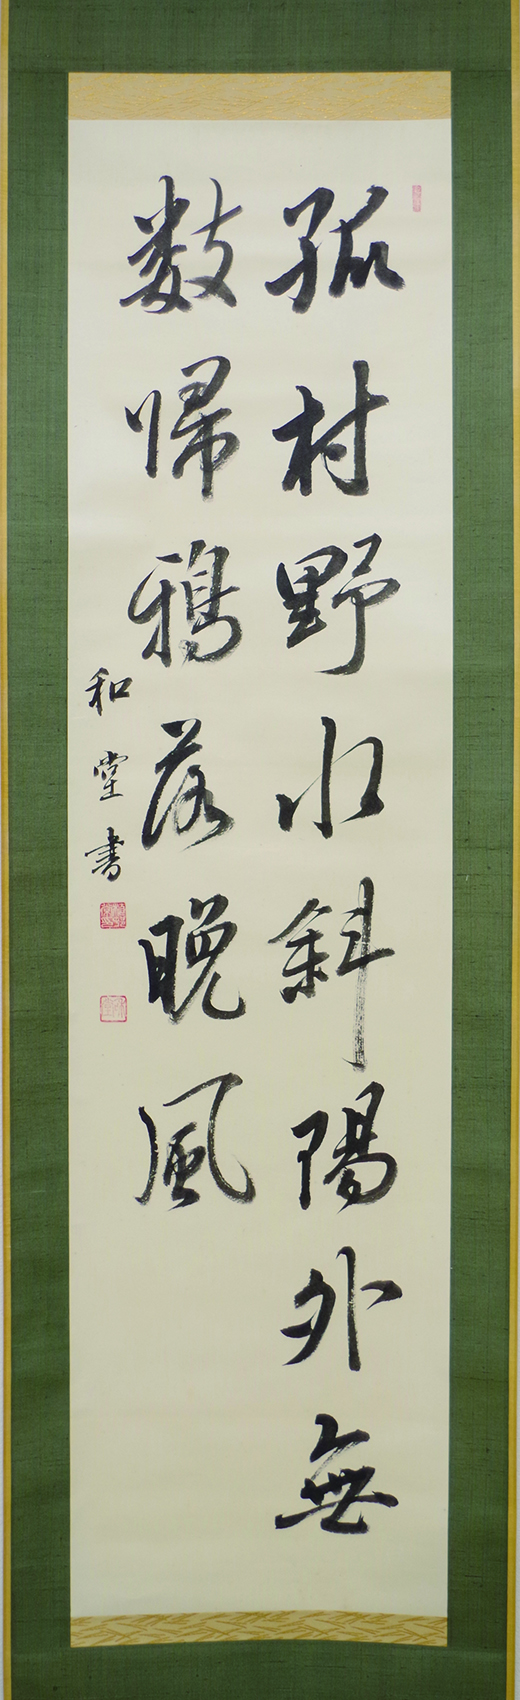 孤村野水斜陽外無
数帰鴉落晩風
和堂書